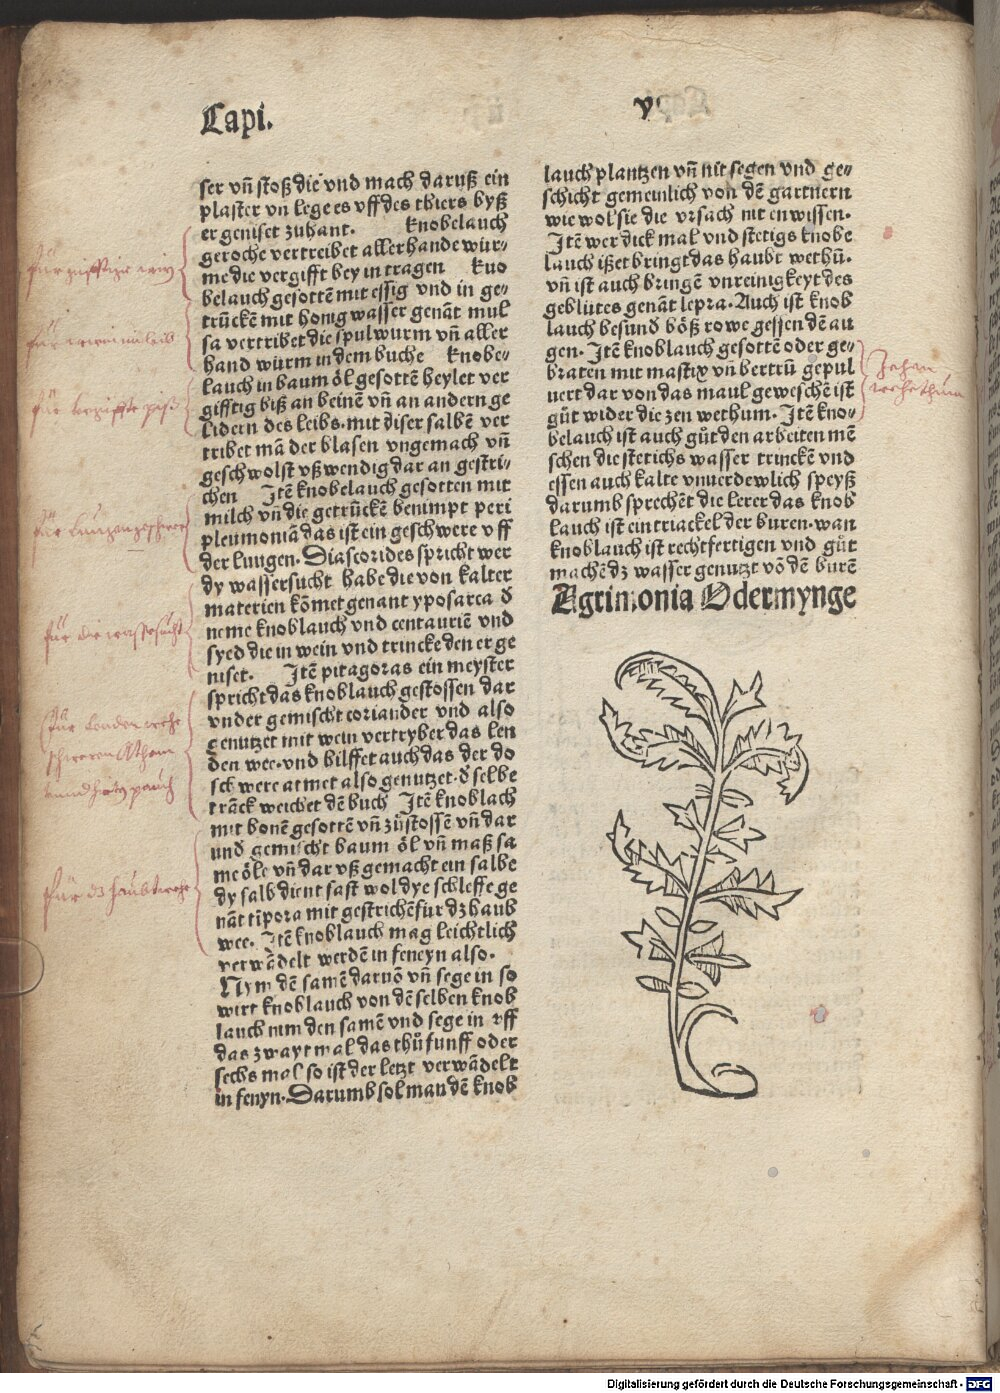 Capi. v
ser vñ stoß die vnd mach daruß ein
plaster vn lege es vff des thiers byß
er geniset zuhant. knobelauch
geroche vertreibet allerhande wür-
me die vergifft bey in tragen kno
belauch gesottē mit essig vnd in ge-
trückē mit honig wasser genāt mul
sa vertribet die spulwurm vñ aller
hand würm in dem buche knobe-
lauch in baum öl gesottē heylet ver
gifftig biß an beinē vñ an andern ge
lidern des leibs. mit diser salbē ver
tribet mā der blasen vngemach vñ
geschwolst vßwendig dar an gestri-
chen Jtē knobelauch gesotten mit
milch vñ die getrückē benimpt peri
pleumoniā das ist ein geschwere vff
der lungen. Diascorides spricht wer
dy wassersucht habe die von kalter
materien kōmet genant yposarca d̄
neme knoblauch vnd centauriē vnd
syed die in wein vnd trincke den er ge
niset. Jtē pitagoras ein meyster
spricht das knoblauch gestossen dar
vnder gemischt coriander vnd also
genutzet mit wein vertryber das len
den wee. vnd hilffet auch das der do
schwere atmet also genutzet. d̄ selbe
trāck weichet dē buch Jtē knoblach
mit bonē gesottē vñ zůstossē vñ dar
und gemischt baum öl vñ maß sa
me öle vñ dar vß gemacht ein salbe
dy salb dient fast wol dye schleffe ge
nāt tipora mit gestrichē für dz haub
wee. Jtē knoblauch mag leichtlich
verwādelt werdē in feneyn also.
Nym dē samē daruō vñ sege in so
wirt knoblauch von dē selben knob
lauch nim den samē vnd sege in vff
das zwayt mal das thů funff oder
sechs mal so ist der letzt verwādelt
in fenyn. Darumb sol man dē knob
lauch plantzen vñ nit segen vnd ge-
schicht gemeinlich von dē gartnern
wie wol sie die vrsach nit enwissen.
Jtē wer dick mal vnd stetigs knobe
lauch ißet bringt das haubt wethů.
vñ ist auch bringē vnreinigkeyt des
geblütes genāt lepra. Auch ist knob
lauch besund böß rowe gessen dē au
gen. Jtē knoblauch gesottē oder ge-
braten mit mastix vñ bertrū gepul
uert dar von das maul geweschē ist
gůt wider die zen wethum. Jtē kno-
belauch ist auch gůt den arbeiten mē
schen die sterichs wasser trinckē vnd
essen auch kalte vnuerdewlich speyß
darumb sprechēt die lerer das knob
lauch ist ein triackel der buren. wan
knoblauch ist rechtfertigen vnd gůt
machē dz wasser genutzt vō dē burē
Agrimonia Odermynge
für die wassersucht
für dz haubtwehe
Digitalisierung gefördert durch die Deutsche Forschungsgemeinschaft - DFG